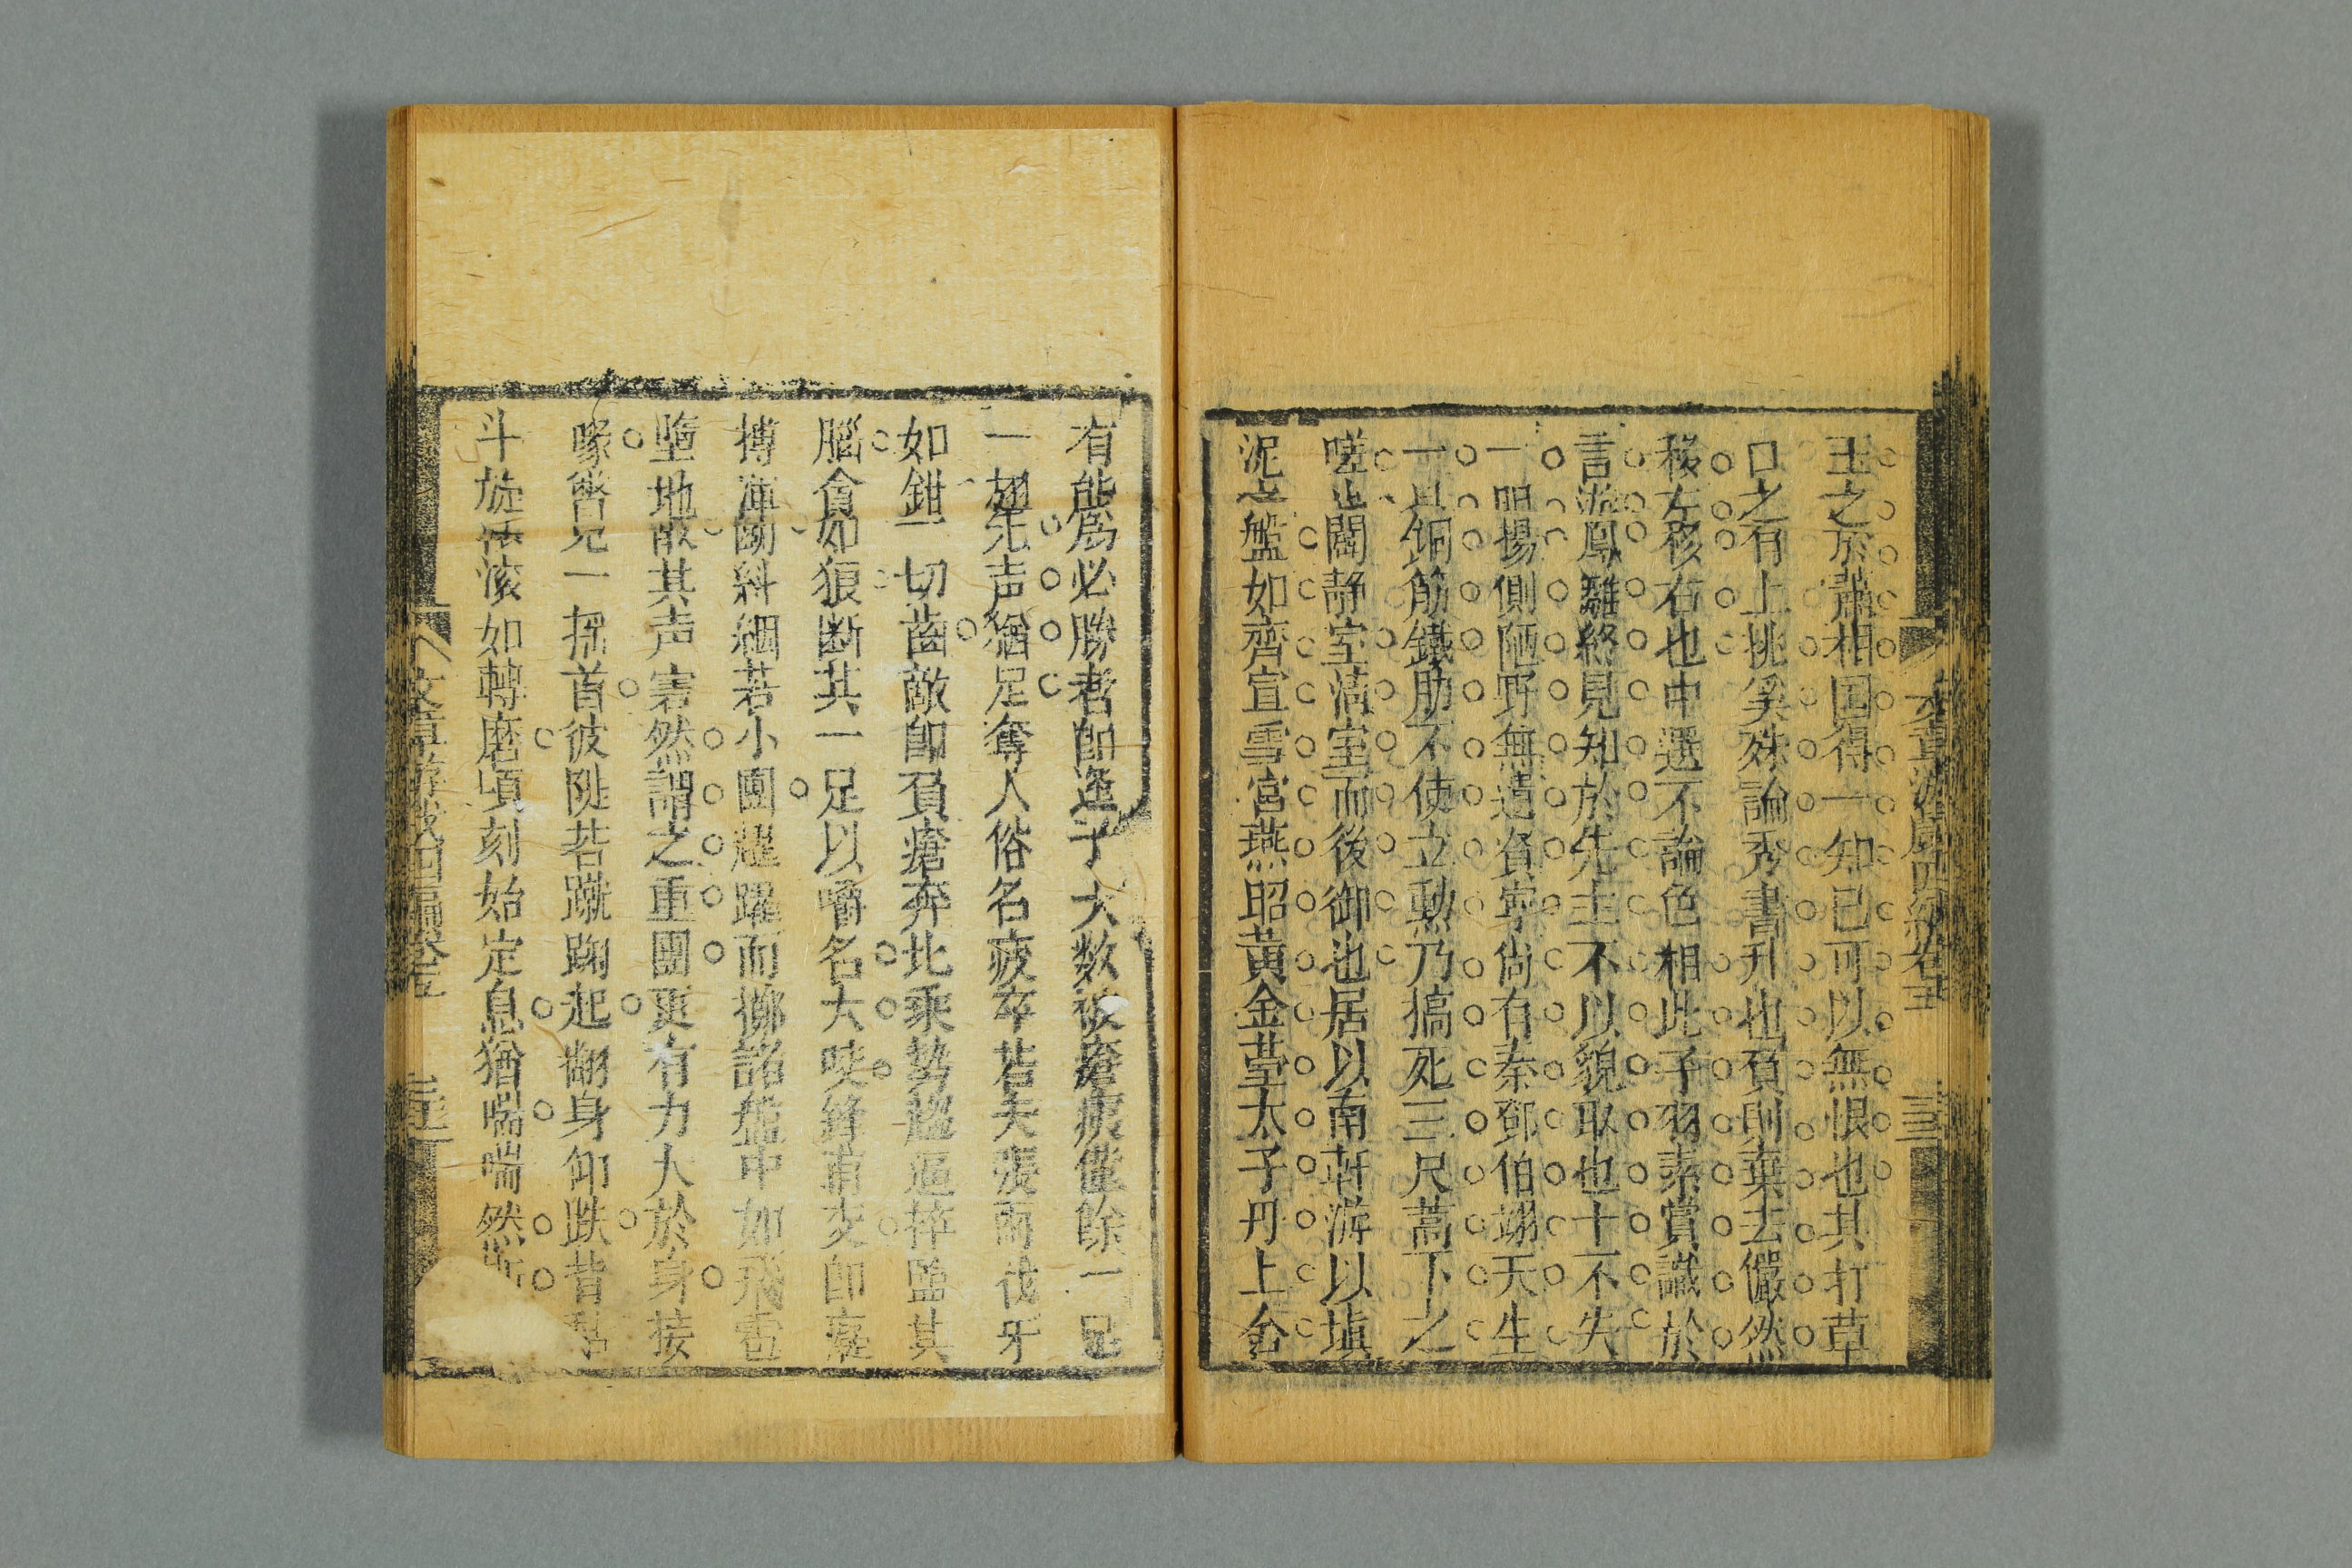 王之於蕭相国得一知己可以無恨也其打草
口之有上挑矣殊論秀書升也負則棄去儼然
移左移右也中選不論色相此子羽素賞識於
言游鳳雛終見知於先主不以貌取也十不失
一明揚側陋野無遺賢寧尚有秦鄧伯翊天生
一具銅筋鐵肋不使立勲乃搞死三尺蒿下之
嗟也闘静室清室而後御也居以南垪游以塡
泥之盤如齊宣雪宮燕昭黃金臺太子丹上舍
文章游戲四編卷五
有能為必勝者即逢子大数被瘡痍僅餘一足
一翅先声猶足奪人俗名疲卒若夫張兩伐牙
如鉗一切齒敵即負瘡奔北乘勢趂逼捽監其
腦貪如狼断其一足以嚼名大唛鋒甫交即
摶渾圇斜絪若小團趯躍而擲諸盤中如飛雹
墮地散其声害然謂之重團更有力大於身接
喙嘗見一搖首彼陡若蹴踘起翻身仰跌昔
斗旋活滚如轉磨頃刻始定息猶喘喘然
文章游戲四編卷五